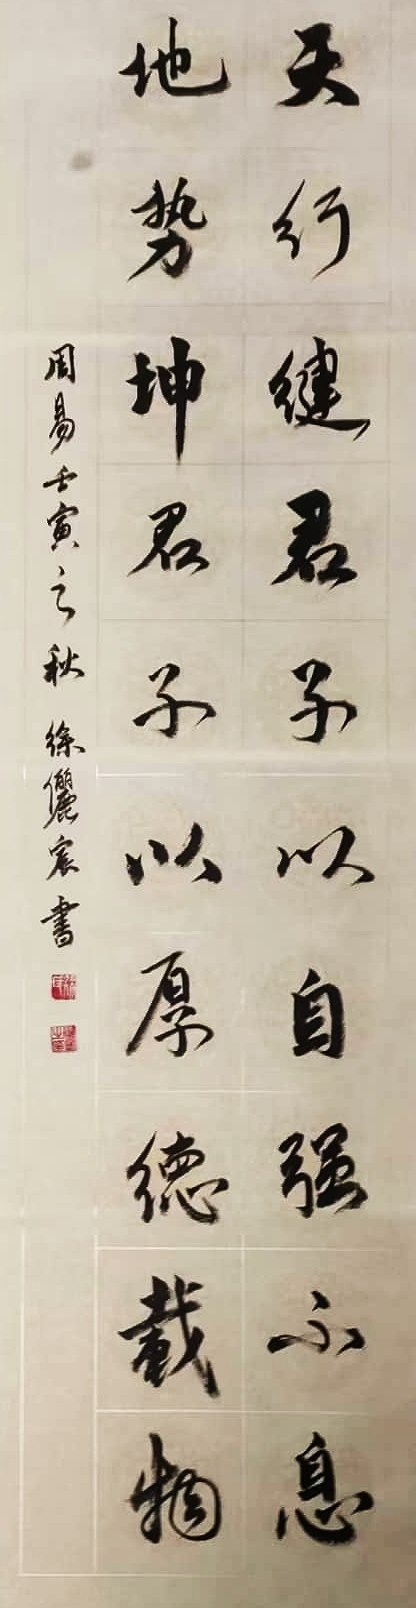 天行健君子以自强不息
地势坤君子以厚德载物
周易壬寅之秋 徐俪宸书